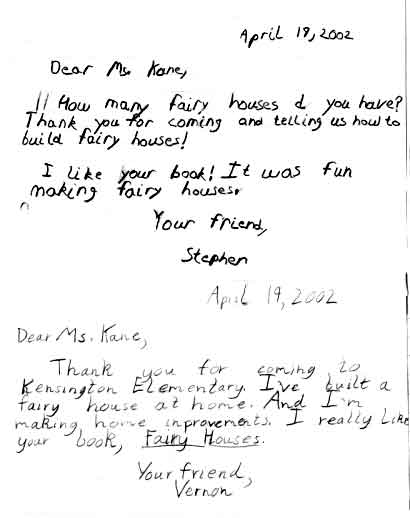 April 19, 2002
Dear Ms. Kane,
How many fairy houses d you have?
Thank you for coming and telling us how to
build fairy houses!
I like your book! It was fun
making fairy houses.
Your friend,
Stephen
April 19, 2002
Dear Ms. Kane,
Thank you for coming to
Kensington Elementary. I've built a
fairy house at home. And I'm
making home inprovements. I really Like
your book, Fairy Houses.
Your friend,
Vernon